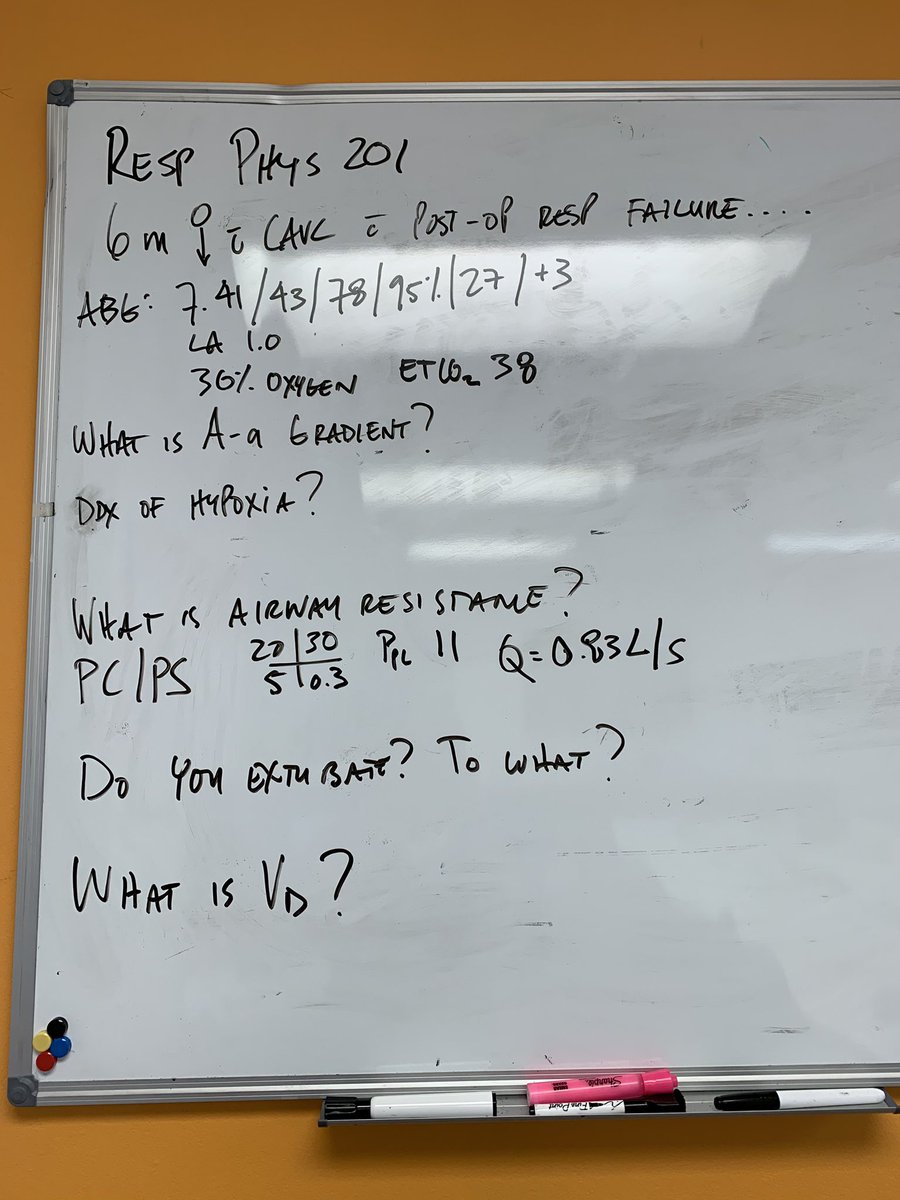 RESP PHYS 201
6 m c̄ CAVC c̄ POST-OP RESP FAILURE....
ABG: 7.41/43/78/95%/27/+3
LA 1.0
30% OXYGEN ETCO₂ 38
WHAT IS A-a GRADIENT?
DDX OF HYPOXIA?
WHAT IS AIRWAY RESISTANCE?
PC/PS 20|30 P_PL 11 Q=0.83L/S
5|0.3
DO YOU EXTUBATE? TO WHAT?
WHAT IS V_D?
Sharpie
Fine Point